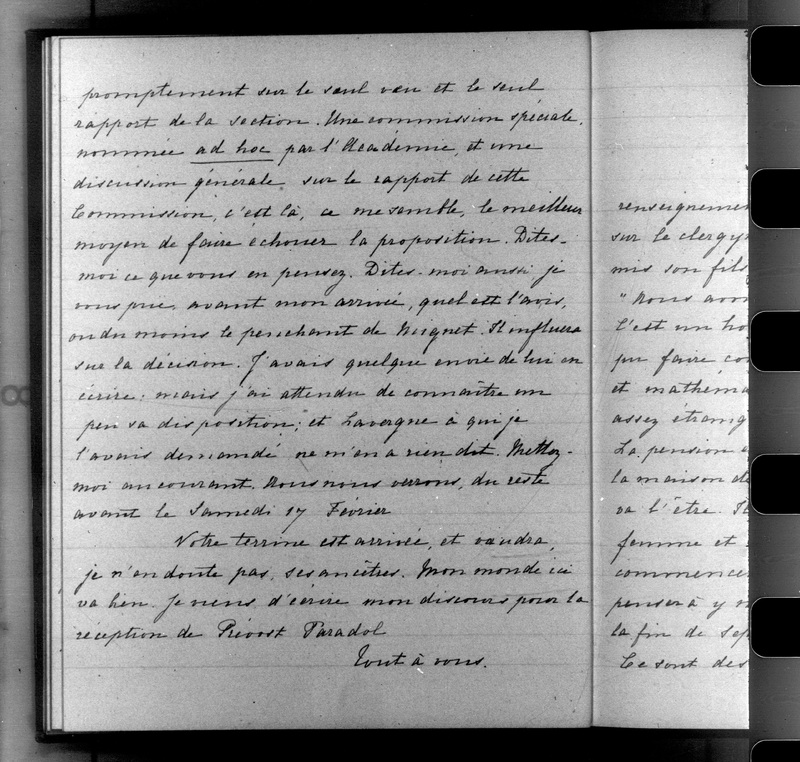 promptement sur le seul vœu et le seul
rapport de la section. Une commission spéciale,
nommée ad hoc par l'Académie, et une
discussion générale sur le rapport de cette
Commission, c'est là, ce me semble, le meilleur
moyen de faire échouer la proposition. Dites-
moi ce que vous en pensez. Dites-moi aussi je
vous prie, avant mon arrivée, quel est l'avis,
ou du moins le penchant de Mignet. Il influera
sur la décision. J'avais quelque envie de lui en
écrire; mais j'ai attendu de connaître un
peu sa disposition; et Lavergne à qui je
l'avais demandé ne m'en a rien dit. Mettez-
moi au courant. Nous nous verrons, du reste
avant le Samedi 17 Février
Votre terrine est arrivée, et vaudra,
je n'en doute pas, ses ancêtres. Mon monde ici
va bien. Je viens d'écrire mon discours pour la
réception de Prévost Paradol
Tout à vous.
renseignemen
sur le clergy
mis son fils
"Nous avon
C'est un ho
pu faire co
et mathéma
assez étrang
La pension
la maison de
va l'être. Il
femme et
commence
pensera à y
la fin de Sep
Ce sont des